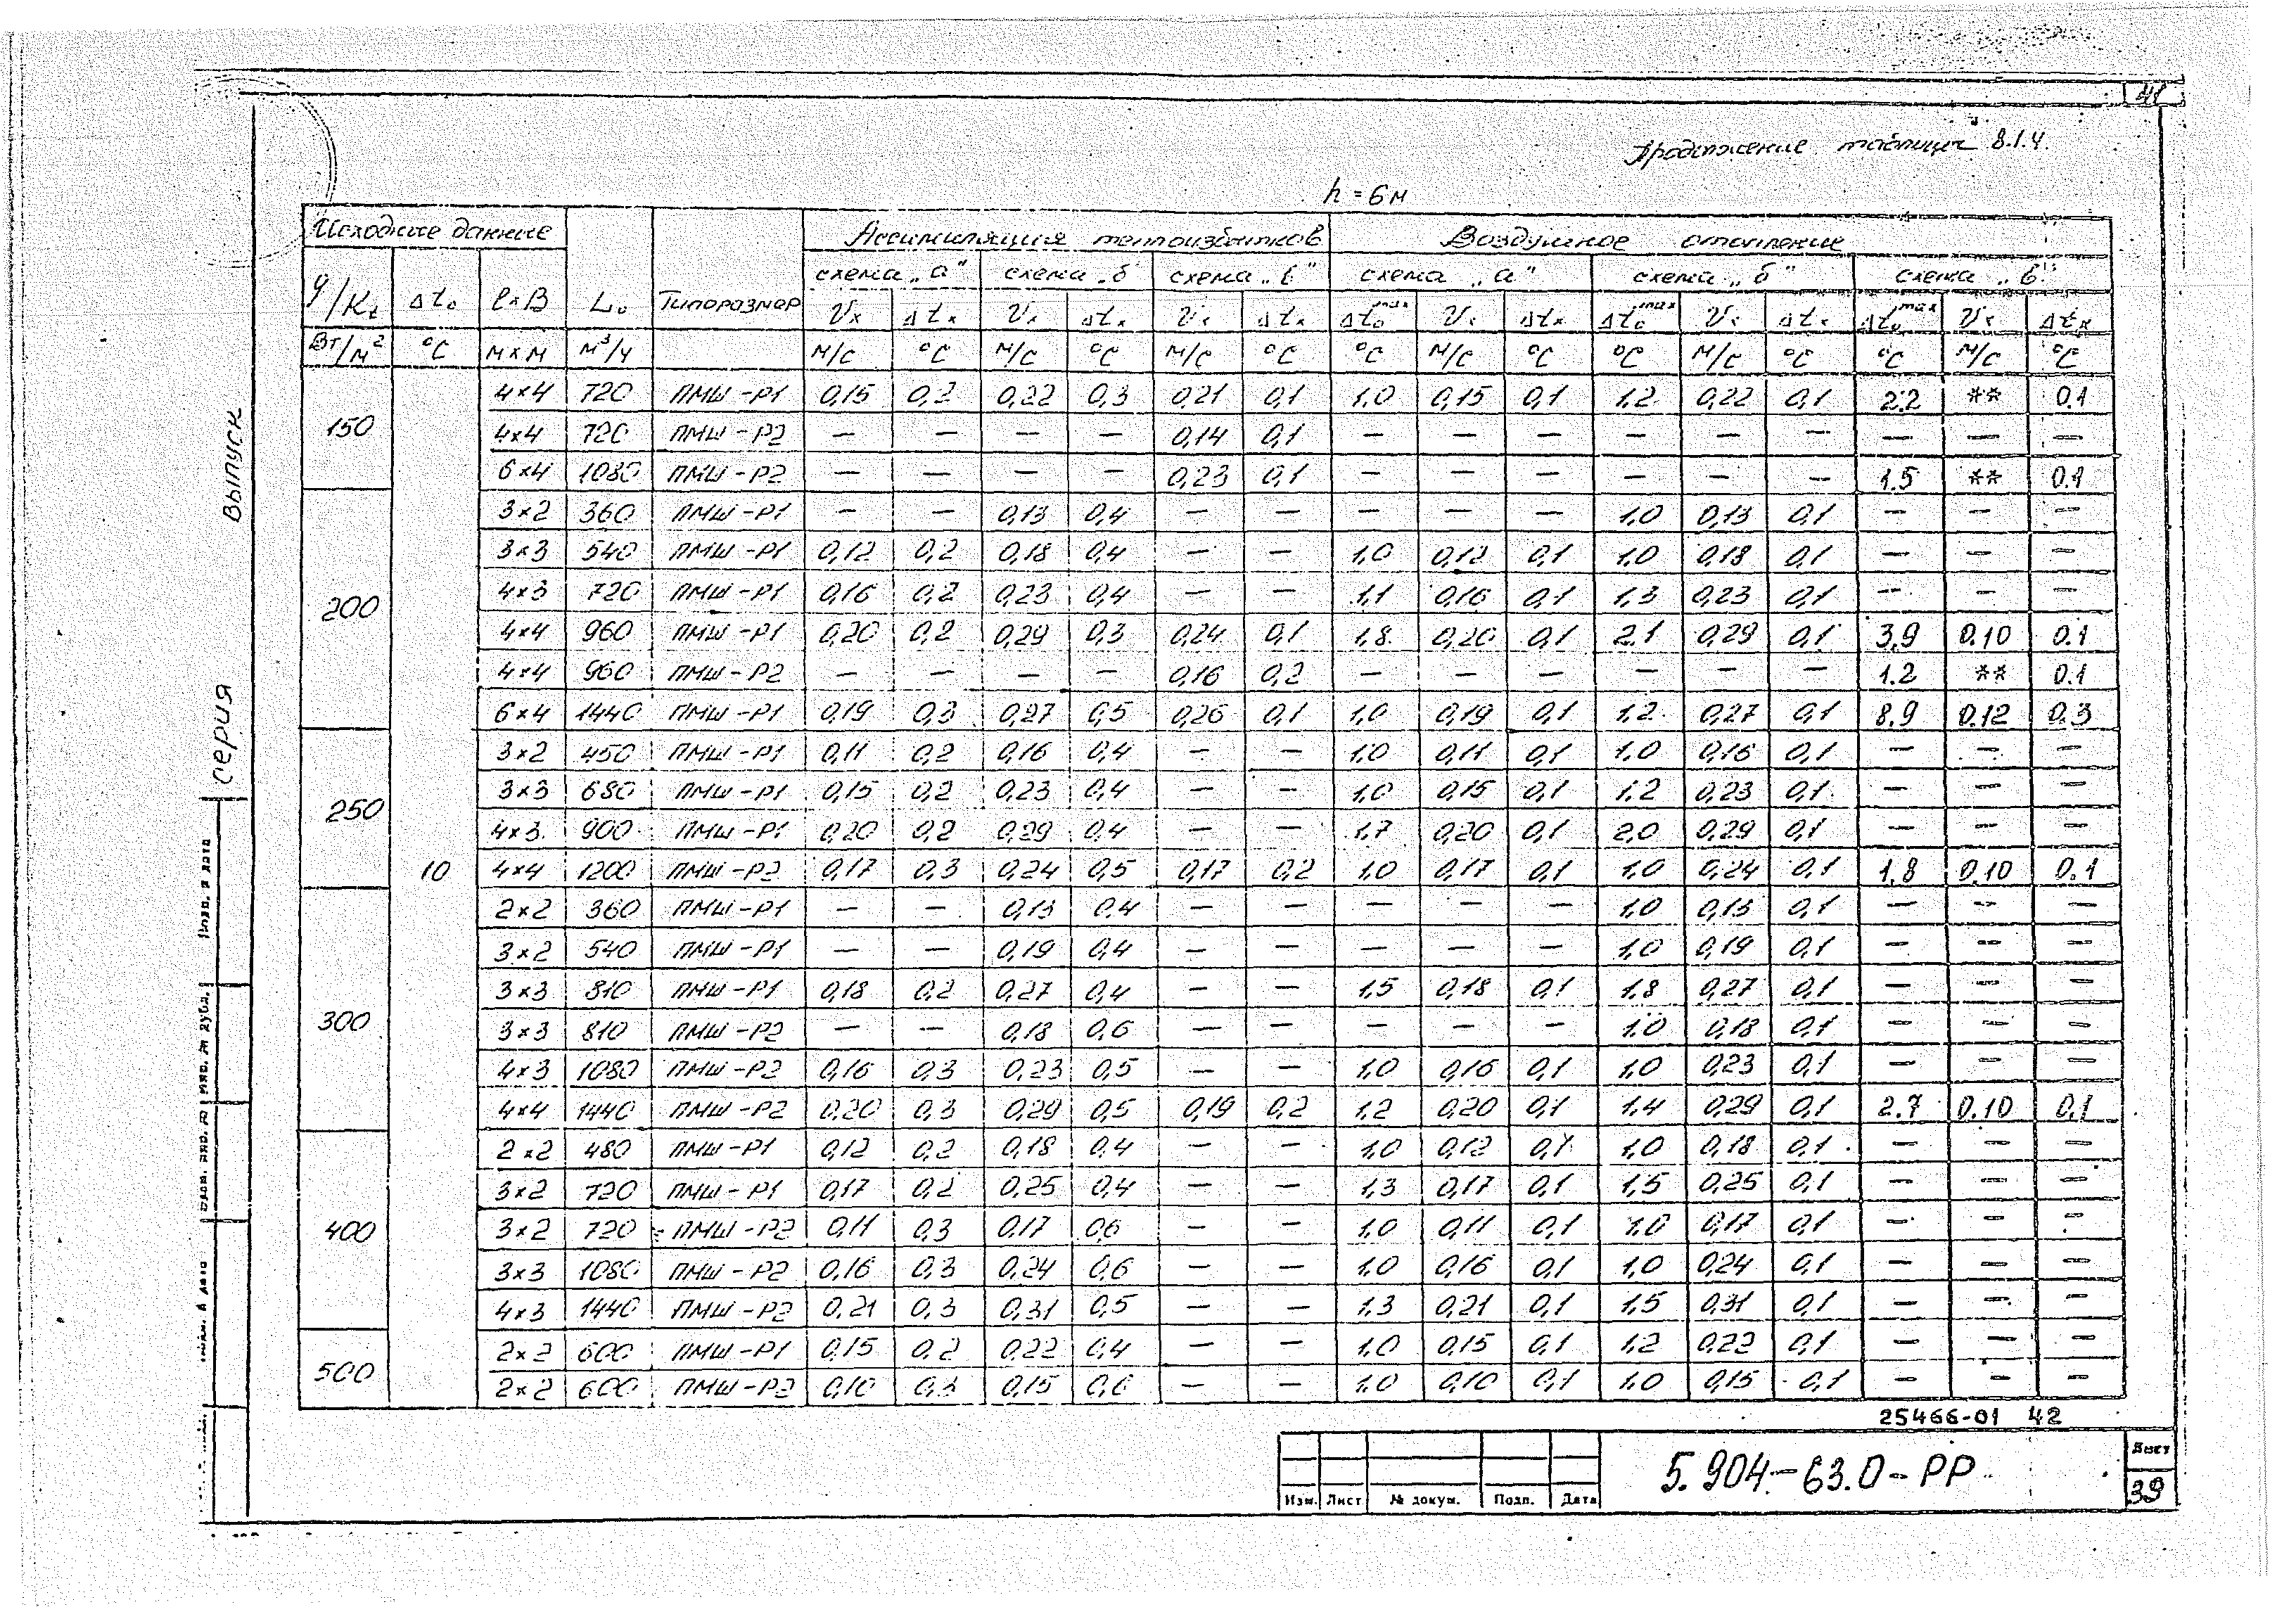 41
Продолжение таблицы 8.1.4.
h = 6 м
Исходные данные | L₀ | Типоразмер | Ассимиляция теплоизбытков | Воздушное отопление
схема „а" | схема „б" | схема „в" | схема „а" | схема „б" | схема „в"
q/Kt | Δt₀ | l×B | Vx | Δtx | Vx | Δtx | Vx | Δtx | Δt₀max | Vx | Δtx | Δt₀max | Vx | Δtx | Δt₀max | Vx | Δtx
Вт/м² | °С | м×м | м³/ч | м/с | °С | м/с | °С | м/с | °С | °С | м/с | °С | °С | м/с | °С | °С | м/с | °С
150 | 10 | 4×4 | 720 | ПМШ-Р1 | 0,15 | 0,2 | 0,22 | 0,3 | 0,21 | 0,1 | 1,0 | 0,15 | 0,1 | 1,2 | 0,22 | 0,1 | 2.2 | ** | 0.1
4×4 | 720 | ПМШ-Р2 | — | — | — | — | 0,14 | 0,1 | — | — | — | — | — | — | — | — | —
6×4 | 1080 | ПМШ-Р2 | — | — | — | — | 0,23 | 0,1 | — | — | — | — | — | — | 1.5 | ** | 0.1
200 | 3×2 | 360 | ПМШ-Р1 | — | — | 0,13 | 0,4 | — | — | — | — | — | 1,0 | 0,13 | 0,1 | — | — | —
3×3 | 540 | ПМШ-Р1 | 0,12 | 0,2 | 0,18 | 0,4 | — | — | 1,0 | 0,12 | 0,1 | 1,0 | 0,18 | 0,1 | — | — | —
4×3 | 720 | ПМШ-Р1 | 0,16 | 0,2 | 0,23 | 0,4 | — | — | 1,1 | 0,16 | 0,1 | 1,3 | 0,23 | 0,1 | — | — | —
4×4 | 960 | ПМШ-Р1 | 0,20 | 0,2 | 0,29 | 0,3 | 0,24 | 0,1 | 1,8 | 0,20 | 0,1 | 2,1 | 0,29 | 0,1 | 3.9 | 0.10 | 0.1
4×4 | 960 | ПМШ-Р2 | — | — | — | — | 0,16 | 0,2 | — | — | — | — | — | — | 1.2 | ** | 0.1
6×4 | 1440 | ПМШ-Р1 | 0,19 | 0,3 | 0,27 | 0,5 | 0,26 | 0,1 | 1,0 | 0,19 | 0,1 | 1,2 | 0,27 | 0,1 | 8.9 | 0.12 | 0.3
250 | 3×2 | 450 | ПМШ-Р1 | 0,11 | 0,2 | 0,16 | 0,4 | — | — | 1,0 | 0,11 | 0,1 | 1,0 | 0,16 | 0,1 | — | — | —
3×3 | 680 | ПМШ-Р1 | 0,15 | 0,2 | 0,23 | 0,4 | — | — | 1,0 | 0,15 | 0,1 | 1,2 | 0,23 | 0,1 | — | — | —
4×3 | 900 | ПМШ-Р1 | 0,20 | 0,2 | 0,29 | 0,4 | — | — | 1,7 | 0,20 | 0,1 | 2,0 | 0,29 | 0,1 | — | — | —
4×4 | 1200 | ПМШ-Р2 | 0,17 | 0,3 | 0,24 | 0,5 | 0,17 | 0,2 | 1,0 | 0,17 | 0,1 | 1,0 | 0,24 | 0,1 | 1.8 | 0.10 | 0.1
300 | 2×2 | 360 | ПМШ-Р1 | — | — | 0,13 | 0,4 | — | — | — | — | — | 1,0 | 0,13 | 0,1 | — | — | —
3×2 | 540 | ПМШ-Р1 | — | — | 0,19 | 0,4 | — | — | — | — | — | 1,0 | 0,19 | 0,1 | — | — | —
3×3 | 810 | ПМШ-Р1 | 0,18 | 0,2 | 0,27 | 0,4 | — | — | 1,5 | 0,18 | 0,1 | 1,8 | 0,27 | 0,1 | — | — | —
3×3 | 810 | ПМШ-Р2 | — | — | 0,18 | 0,6 | — | — | — | — | — | 1,0 | 0,18 | 0,1 | — | — | —
4×3 | 1080 | ПМШ-Р2 | 0,16 | 0,3 | 0,23 | 0,5 | — | — | 1,0 | 0,16 | 0,1 | 1,0 | 0,23 | 0,1 | — | — | —
4×4 | 1440 | ПМШ-Р2 | 0,20 | 0,3 | 0,29 | 0,5 | 0,19 | 0,2 | 1,2 | 0,20 | 0,1 | 1,4 | 0,29 | 0,1 | 2.7 | 0.10 | 0,1
400 | 2×2 | 480 | ПМШ-Р1 | 0,12 | 0,2 | 0,18 | 0,4 | — | — | 1,0 | 0,12 | 0,1 | 1,0 | 0,18 | 0,1 | — | — | —
3×2 | 720 | ПМШ-Р1 | 0,17 | 0,2 | 0,25 | 0,4 | — | — | 1,3 | 0,17 | 0,1 | 1,5 | 0,25 | 0,1 | — | — | —
3×2 | 720 | ПМШ-Р2 | 0,11 | 0,3 | 0,17 | 0,6 | — | — | 1,0 | 0,11 | 0,1 | 1,0 | 0,17 | 0,1 | — | — | —
3×3 | 1080 | ПМШ-Р2 | 0,16 | 0,3 | 0,24 | 0,6 | — | — | 1,0 | 0,16 | 0,1 | 1,0 | 0,24 | 0,1 | — | — | —
4×3 | 1440 | ПМШ-Р2 | 0,21 | 0,3 | 0,31 | 0,5 | — | — | 1,3 | 0,21 | 0,1 | 1,5 | 0,31 | 0,1 | — | — | —
500 | 2×2 | 600 | ПМШ-Р1 | 0,15 | 0,2 | 0,22 | 0,4 | — | — | 1,0 | 0,15 | 0,1 | 1,2 | 0,22 | 0,1 | — | — | —
2×2 | 600 | ПМШ-Р2 | 0,10 | 0,3 | 0,15 | 0,6 | — | — | 1,0 | 0,10 | 0,1 | 1,0 | 0,15 | 0,1 | — | — | —
25466-01 42
5.904-63.0-РР
Лист
39
Изм. Лист № докум. Подп. Дата
серия выпуск
Подп. и дата